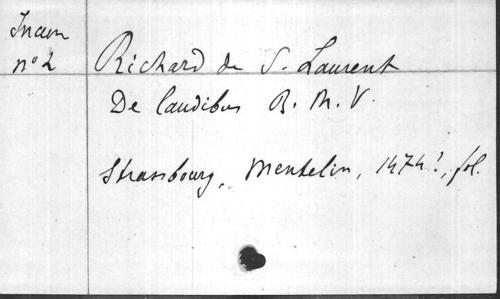 Incun
nº 2
Richard de S. Laurent
De laudibus B. M. V.
Strasbourg, Mentelin, 1474?, fol.